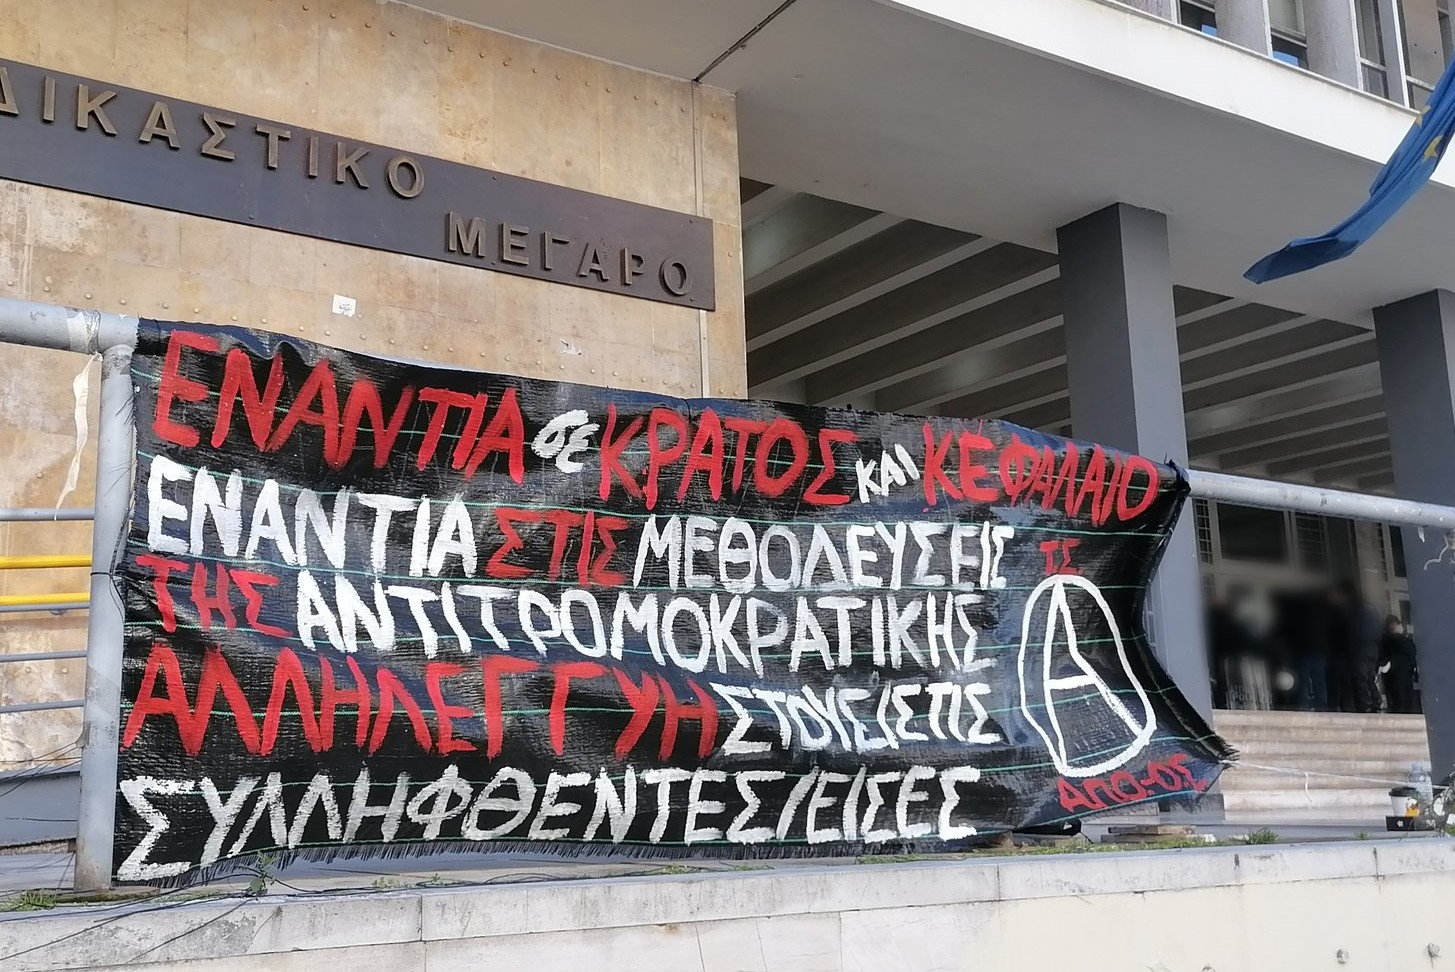 ΔΙΚΑΣΤΙΚΟ
ΜΕΓΑΡΟ
ΕΝΑΝΤΙΑ σε ΚΡΑΤΟΣ ΚΑΙ ΚΕΦΑΛΑΙΟ
ΕΝΑΝΤΙΑ ΣΤΙΣ ΜΕΘΟΔΕΥΣΕΙΣ
ΤΗΣ ΑΝΤΙΤΡΟΜΟΚΡΑΤΙΚΗΣ
ΑΛΛΗΛΕΓΓΥΗ ΣΤΟΥΣ/ΣΤΙΣ
ΣΥΛΛΗΦΘΕΝΤΕΣ/ΕΙΣΕΣ
ΤΣ.
Α
ΑΠΟ-ΟΣ